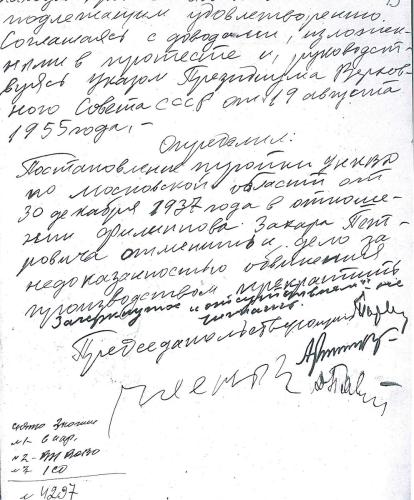 подлежащим удовлетворению.
Соглашаясь с доводами, изложен-
ными в протесте и, руководст-
вуясь указом Президиума Верхов-
ного Совета СССР от 19 августа
1955 года, -
Определил:
Постановление тройки УНКВД
по Московской области от
30 декабря 1937 года в отноше-
нии Филиппова Захара Пет-
ровича отменить и дело за
недоказанностью обвинения
производством прекратить
Зачеркнутое не
читать.
Председательствующий
Члены
1 СО
4297